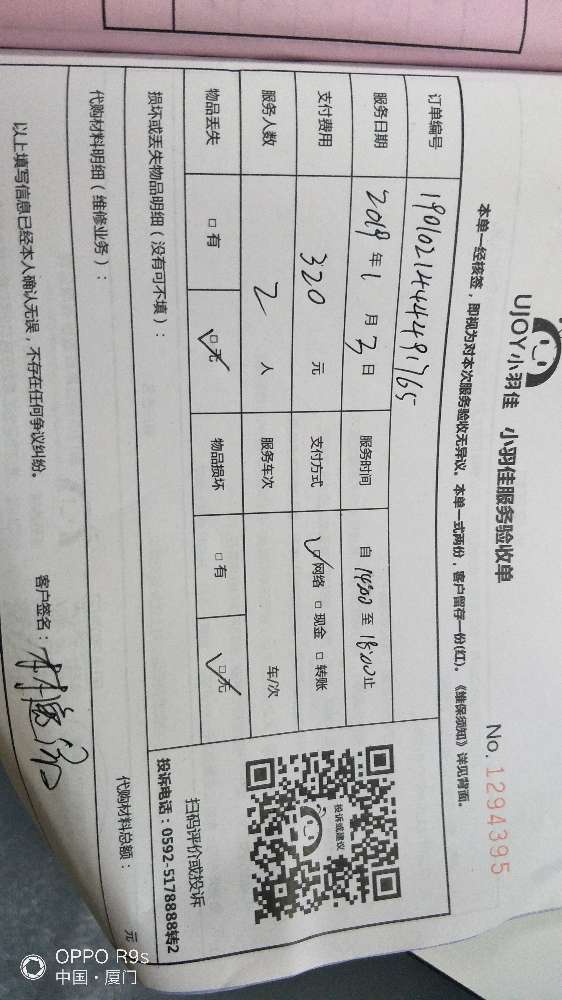 UJOY小羽佳 小羽佳服务验收单
No. 1294395
本单一经核签，即视为对本次服务验收无异议。本单一式两份，客户留存一份(红)。《维保须知》详见背面。
订单编号 19010214444491765
服务日期 2019 年 1 月 3 日 服务时间 自 14:00 至 18:00 止
支付费用 320 元 支付方式 ☑网络 □现金 □转账
服务人数 2 人 服务车次 车/次
物品丢失 □有 ☑无 物品损坏 □有 ☑无
损坏或丢失物品明细（没有可不填）：
代购材料明细（维修业务）：
代购材料总额： 元
投诉或建议
扫码评价或投诉
投诉电话：0592-5178888转2
以上填写信息已经本人确认无误，不存在任何争议纠纷。 客户签名：
OPPO R9s
中国·厦门